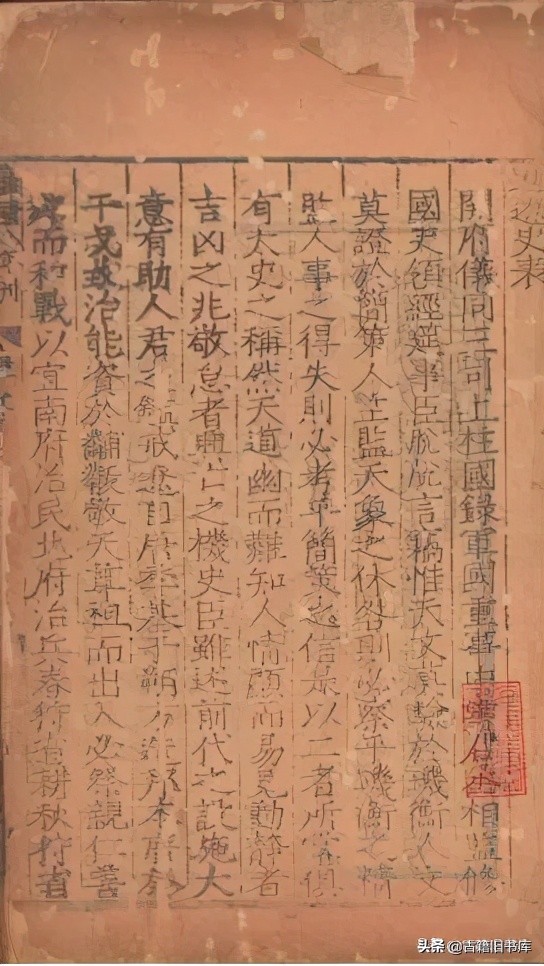 進遼史表
開府儀同三司上柱國錄軍國重事中書右丞相監修
國史領經筵事臣脫脫言竊惟天文莫驗於璣衡人文
莫證於簡策人主監天象之休咎則必察乎璣衡之精
監人事之得失則必考乎簡策之信是以二者所掌俱
有太史之稱然天道幽而難知人情顯而易見動靜者
吉凶之兆敬怠者興亡之機史臣雖述前代之設施大
意有助人君之鑒戒遼自唐季基于朔方造邦本席於
干戈致治能資於黼黻敬天尊祖而出入必祭親仁善
鄰而和戰以宜南府治民北府治兵春狩省耕秋狩省
头条 @古籍旧书库